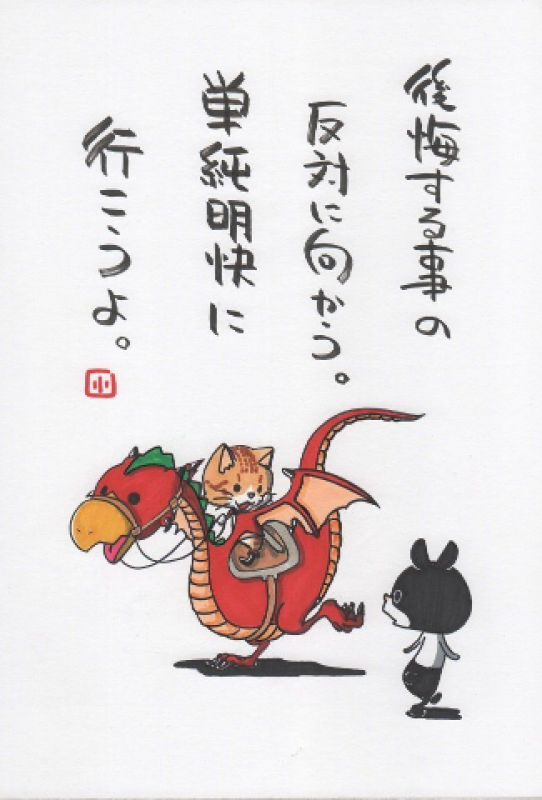 後悔する事の
反対に向かう。
単純明快に
行こうよ。
小